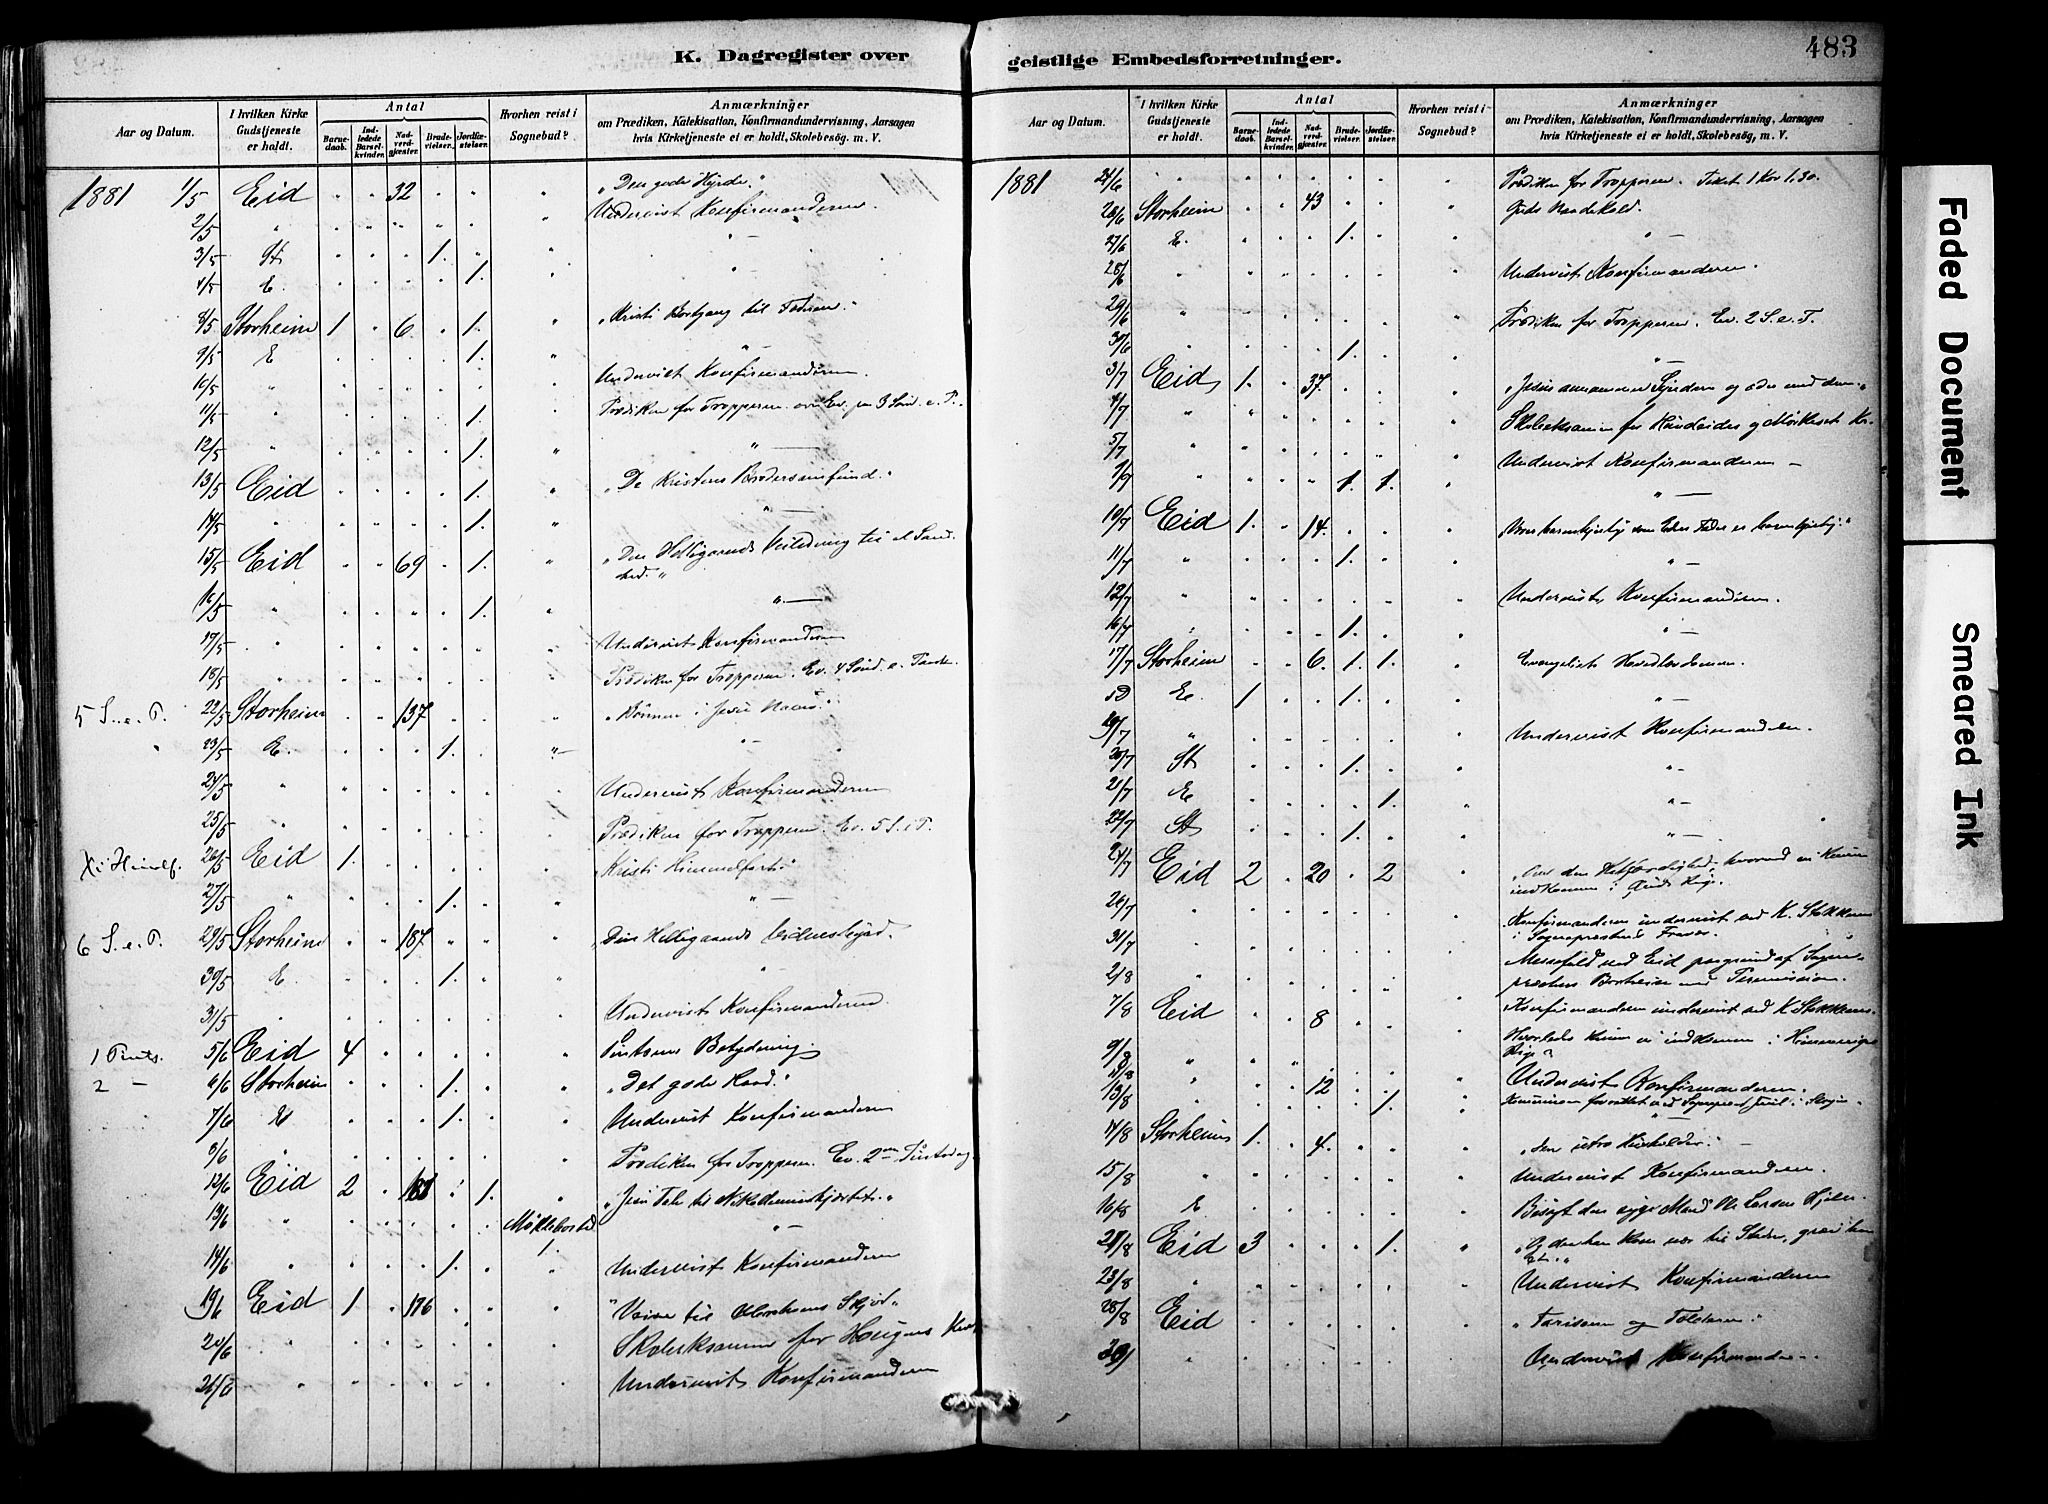 K. Dagregister over
Aar og Datum.
I hvilken Kirke Gudstjeneste er holdt.
Antal
Barnedaab.
Indledede Barselkvinder.
Nadverdgjæster.
Brudevielser.
Jordfæstelser.
Hvorhen reist i Sognebud?
Anmærkninger
om Prædiken, Katekisation, Konfirmandundervisning, Aarsagen
hvis Kirketjeneste ei er holdt, Skolebesög. m. V.
1881 1/5 Eid " " 32 " " " "Den gode Hyrde."
2/5 " Undervist Konfirmanderne
3/5 St 1. " -
4/5 E. 1. " -
8/5 Storheim 1 " 6 " 1. " "Kristi Bortgang til Faderen."
9/5 E 1. " -
10/5 " Undervist Konfirmanderne.
11/5 " 1. Prædiken for Tropperne over Ev. paa 3 Sønd. e. P.
12/5 " 1. " -
13/5 Eid 1. " "De Kristnes Brodersamfund."
14/5 " 1. " -
15/5 Eid " " 69 " 1. " "Den Helligaands Veiledning til al Sand-
hed."
16/5 " 1. " -
17/5 " Undervist Konfirmanderne
18/5 " Prædiken for Tropperne. Ev. 4 Sønd. e. Paaske.
5 S. e. P. 22/5 Storheim " " 137 "Bønnen i Jesu Navn."
" 23/5 E. 1. " -
24/5 " Undervist Konfirmanderne
25/5 " Prædiken for Tropperne. Ev. 5 S. e. P.
Xi Himlf. 26/5 Eid 1. Kristi Himmelfart.
27/5 " 1. " -
6 S. e. P. 29/5 Storheim " " 187 " " " Den Helligaands Vidnesbyrd.
30/5 E. 1. " -
31/5 " Undervist Konfirmanderne.
1 Pints. 5/6 Eid 4 Pintsens Betydning.
2 - 6/6 Storheim 1. "Det gode Raad."
7/6 E 1. Undervist Konfirmanderne
9/6 " Prædiken for Tropperne. Ev. 2den Pintsedag
12/6 Eid 2 " 1. " "Jesu Tale til Nikodemus
13/6 " " -
1.
14/6 " 1. Undervist Konfirmanderne
19/6 Eid 1 " 176 " " " "Veien til Abrahams Skjød"
20/6 " Skoleeksamen for Haugens
" Undervist Konfirmanderne
geistlige Embedsforretninger.
483
Aar og Datum.
I hvilken Kirke Gudstjeneste er holdt.
Antal
Barnedaab.
Indledede Barselkvinder.
Nadverdgjæster.
Brudevielser.
Jordfæstelser.
Hvorhen reist i Sognebud?
Anmærkninger
om Prædiken, Katekisation, Konfirmandundervisning, Aarsagen
hvis Kirketjeneste ei er holdt, Skolebesög, m. V.
1881 24/6 " Prædiken for Tropperne. Tekst 1 Kor 1,30.
26/6 Storheim " " 43 Guds Naadekald.
27/6 E. 1. " -
28/6 " Undervist Konfirmanderne.
29/6 " Prædiken for Tropperne. Ev. 2 S. e. T.
30/6 " 1. " -
3/7 Eid 1. " 37. "Jesus annammer Syndere og æder med dem."
4/7 " Skoleeksamen for
5/7 " Undervist Konfirmanderne -
9/7 " 1. 1. " -
10/7 Eid 1. " 14. "Vær barmhjertig som Eders Fader er barmhjertig."
11/7 " 1. " -
12/7 " Undervist Konfirmanderne.
16/7 " 1. " -
17/7 Storheim " " 6. 1. 1. " Evangeliets
E. 1 1. " -
19/7 " Undervist Konfirmanderne.
20/7 St 1. " -
21/7 E 1. " -
22/7 St 1. " -
24/7 Eid 2 " 20 " 2 "Om den Retfærdighed, hvorved vi kunne
indkomme i Guds Rige.
26/7 " Konfirmanderne undervist ved K.
i Sognepræstens Fravær.
31/7 " Messefald ved Eid paagrund af Sogne-
præstens Bortreise med Permission.
2/8 " Konfirmanderne undervist ved K.
7/8 Eid " " 8 Hvorledes kunne vi indkomme i Himmeriges
Rige?
9/8 " Undervist Konfirmanderne.
" 12
13/8 " 1. " -
14/8 Storheim 1. " 4. "Den utro Husholder."
15/8 " Undervist Konfirmanderne.
16/8 E. Besøgt den syge Mand Ole Larsen
21/8 Eid 3 1. " "Og der han kom nær til Staden, græd han
etc."
23/8 " Undervist Konfirmanderne
28/8 Eid "Farisæeren og Tolderen."
" Undervist Konfirmanderne
Faded Document
Smeared Ink